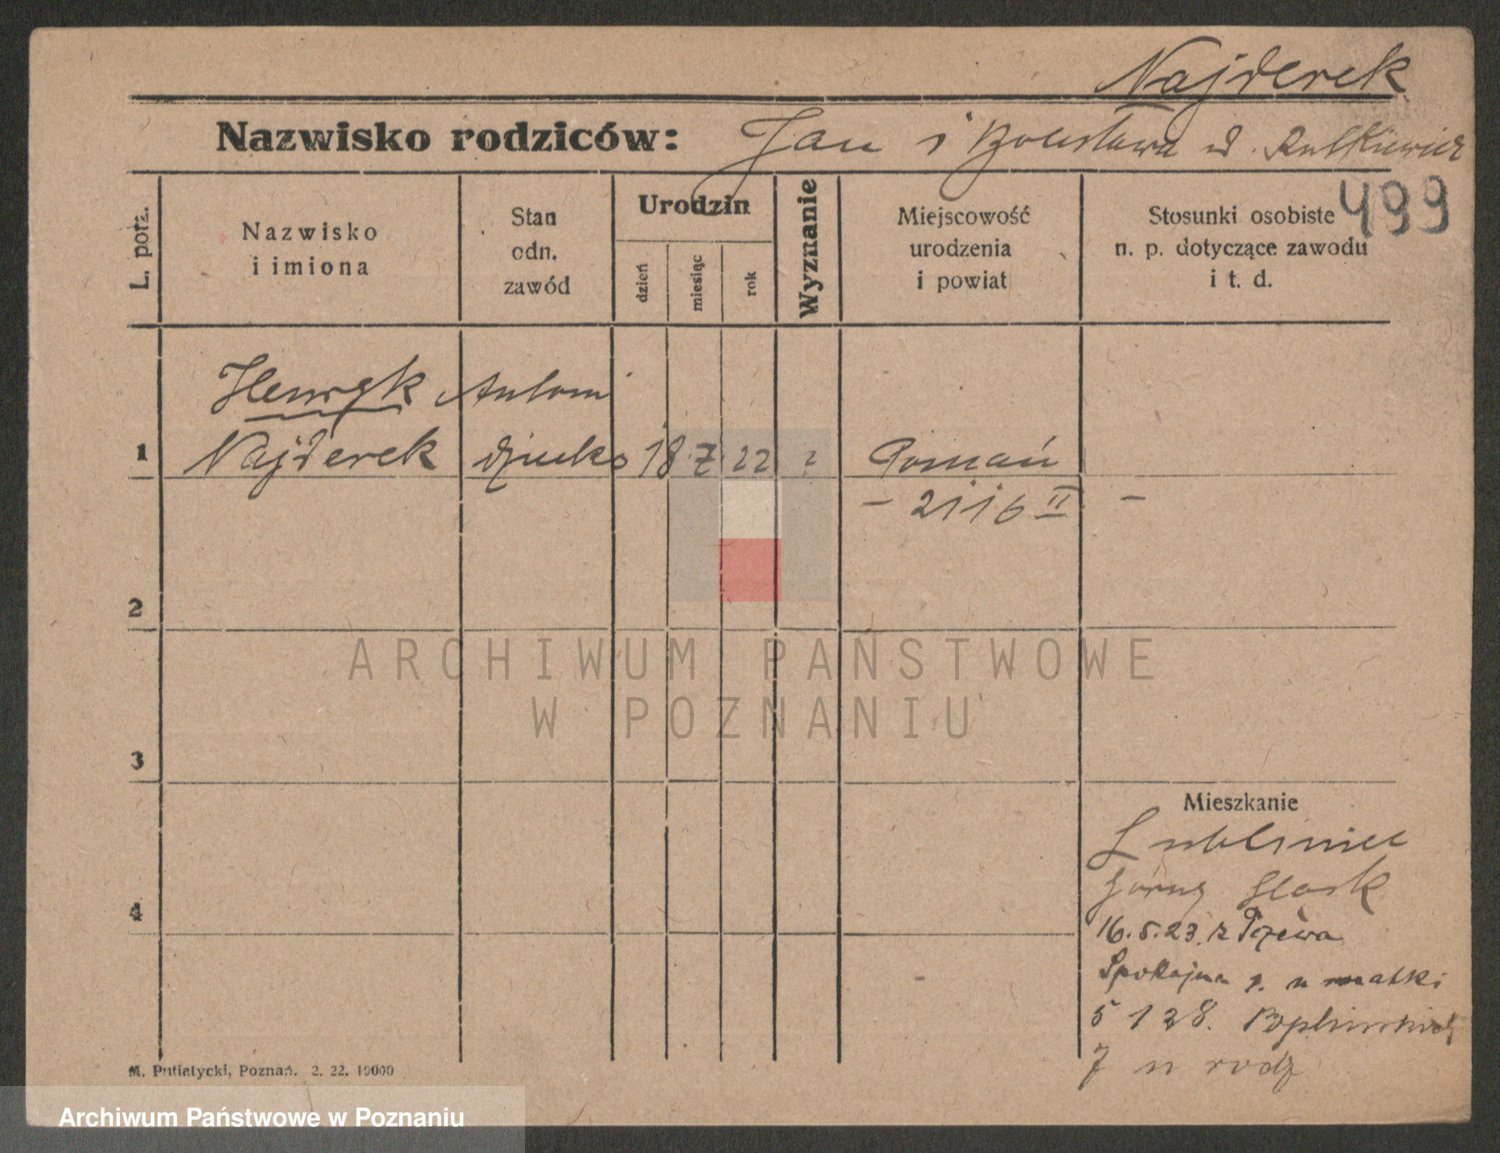 Najderek
Nazwisko rodziców: Jan i Bolesława d. Rutkiewicz
499
L. porz.
Nazwisko
i imiona
Stan
odn.
zawód
Urodzin
dzień
miesiąc
rok
Wyznanie
Miejscowość
urodzenia
i powiat
Stosunki osobiste
n. p. dotyczące zawodu
i t. d.
Henryk Antoni
1 Najderek dziecko 18 7 22 Poznań
- 2116 II -
2
3
4
Mieszkanie
Lubliniec
Górny Śląsk
16.5.23. z
Spokojna u matki
5 128.
7 u rodz
M. Putiatycki, Poznań. 2. 22. 10000
ARCHIWUM PAŃSTWOWE
W POZNANIU
Archiwum Państwowe w Poznaniu